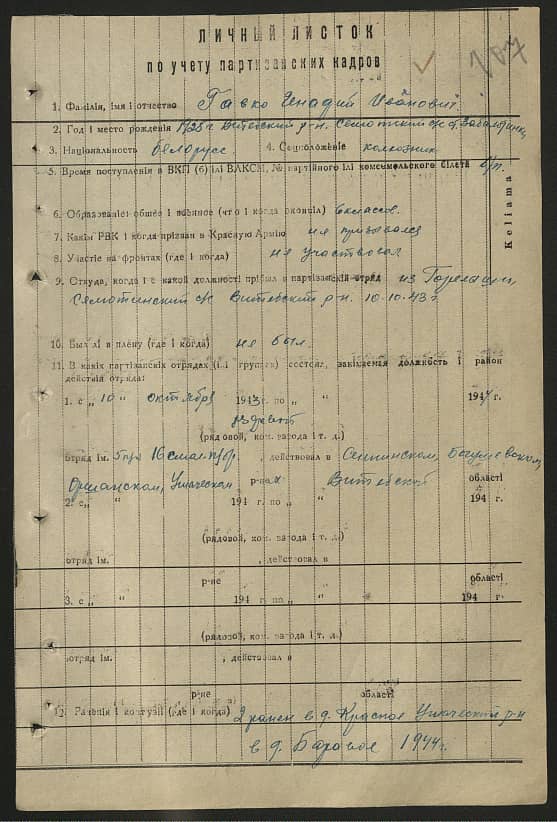 ЛИЧНЫЙ ЛИСТОК
по учету партизанских кадров
107
1. Фамілія, імя і отчество Гавко Генадий Иванович
2. Год і место рождения 1928 г Витебский р-н. Семотский с/с
3. Національность белорусс 4. Соцположеніе колхозник
5. Время поступления в ВКП (б) ілі ВЛКСМ, № партийного ілі комсомольского білета б/п.
Keliama
6. Образованіе: общее і военное (что і когда окончіл) 6 классов.
7. Какім РВК і когда прізван в Красную Армію не призывался
8. Участіе на фронтах (где і когда) не участвовал
9. Откуда, когда і с какой должності прібыл в партізанскій отряд из
Семотинский с/с Витебский р-н. 10-10-43 г
10. Был лі в плену (где і когда) не был.
11. В какіх партізанскіх отрядах (ілі группах) состоял, занімаемая должность і район
действій отряда:
1. с „ 10 “ октября 1943 г. по „ “ 1944 г.
рядовой
(рядовой, ком. взвода і т. д.)
отряд ім. 16 смол. , действовал в Сеннинском, Богушевском,
Оршанском, Ушачском р-нах Витебской області
2. с „ “ 194 г. по „ “ 194 г.
(рядовой, ком. взвода і т. д.)
отряд ім. , действовал в
р-не області
3. с „ “ 194 г. по „ “ 194 г.
(рядовой, ком. взвода і т. д.)
отряд ім. , действовал в
р-не області
12. Ранения і контузії (где і когда) ранен в д. Красное Ушачский р-н
в д. Боровое 1944 г.